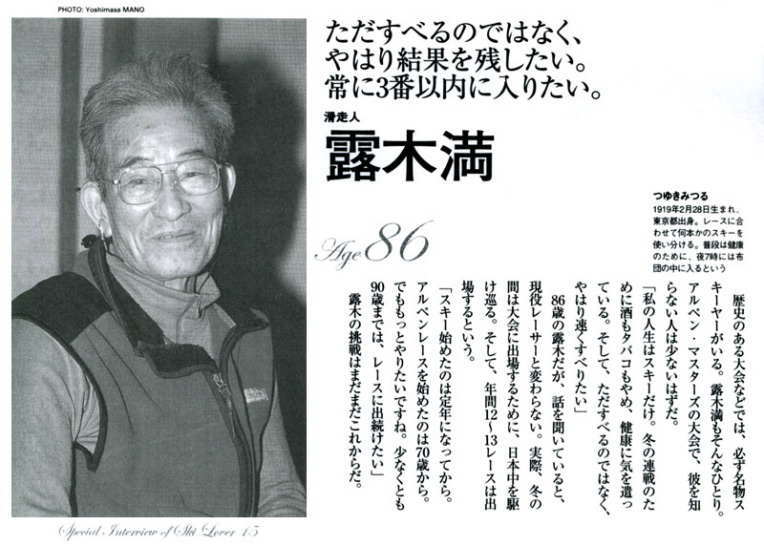 PHOTO: Yoshimasa MANO
ただすべるのではなく、
やはり結果を残したい。
常に3番以内に入りたい。
滑走人
露木満
Age 86
つゆきみつる
1919年2月28日生まれ、
東京都出身。レースに合
わせて何本かのスキーを
使い分ける。普段は健康
のために、夜7時には布
団の中に入るという
歴史のある大会などでは、必ず名物ス
キーヤーがいる。露木満もそんなひとり。
アルペン・マスターズの大会で、彼を知
らない人は少ないはずだ。
「私の人生はスキーだけ。冬の連戦のた
めに酒もタバコもやめ、健康に気を遣っ
ている。そして、ただすべるのではなく、
やはり速くすべりたい」
86歳の露木だが、話を聞いていると、
現役レーサーと変わらない。実際、冬の
間は大会に出場するために、日本中を駆
け巡る。そして、年間12〜13レースは出
場するという。
「スキー始めたのは定年になってから。
アルペンレースを始めたのは70歳から。
でももっとやりたいですね。少なくとも
90歳までは、レースに出続けたい」
露木の挑戦はまだまだこれからだ。
Special Interview of Ski Lover 15